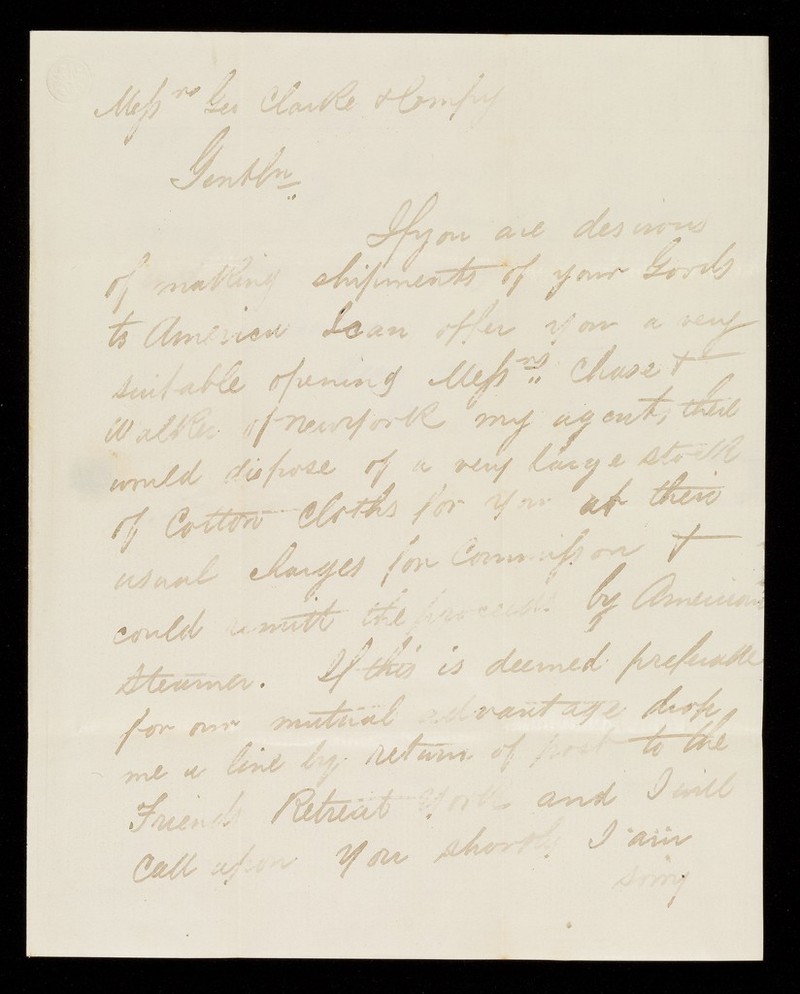 Mess rs Geo Clarke & Compy
Gentln
If you are desirous
of making shipments of your Goods
to America I can offer you a very
suitable opening Mess rs Chase &
Walker of Newyork my agents, there
would dispose of a very large stock
of Cotton cloths for you at their
usual charges for Commission &
could remitt the proceeds by American
Steamer. If this is deemed preferable
for our mutual advantage drop
me a line by return of post to the
Friends Retreat York and I will
Call upon You shortly I am